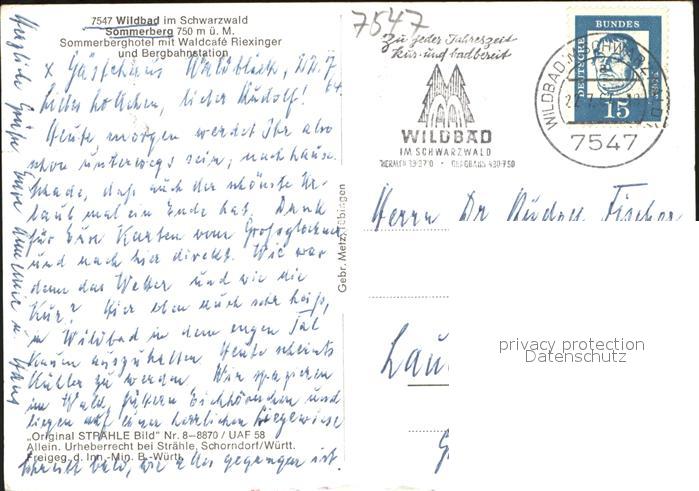 7547 Wildbad im Schwarzwald
Sommerberg 750 m ü. M.
Sommerberghotel mit Waldcafé Riexinger
und Bergbahnstation
x Gästehaus Waldblick, 22.7.64.
lieber Rudolf!
Heute morgen werdet Ihr also
schon unterwegs sein, nachhause.
Schade, daß auch der schönste Ur-
laub mal ein Ende hat. Dank
für Eure Karten vom Großglockner
und nach hier direkt. Wie war
denn das Wetter und wie die
Kur? Hier eben auch sehr heiß,
in Wildbad in dem engen Tal
kaum auszuhalten. Heute scheints
kühler zu werden. Wir spazieren
im Wald, füttern Eichhörnchen und
liegen auf einer herrlichen Liegewiese
„Original STRÄHLE Bild" Nr. 8-8870 / UAF 58
Allein. Urheberrecht bei Strähle, Schorndorf/Württ.
Freigeg. d. Inn.-Min. B.-Württ.
Schreibt bald, wie alles gegangen ist.
Herzliche Grüße Eure Annemie u. Hans
Gebr. Metz, Tübingen
7547
Zu jeder Jahreszeit
kur- und badbereit
WILDBAD
IM SCHWARZWALD
THERMEN 35-37°C · BERGBAHN 430-750
DEUTSCHE
BUNDES
POST
15
WILDBAD IM SCHWARZWALD
7547
Herrn Dr Rudolf Fischer
Lau
privacy protection
Datenschutz